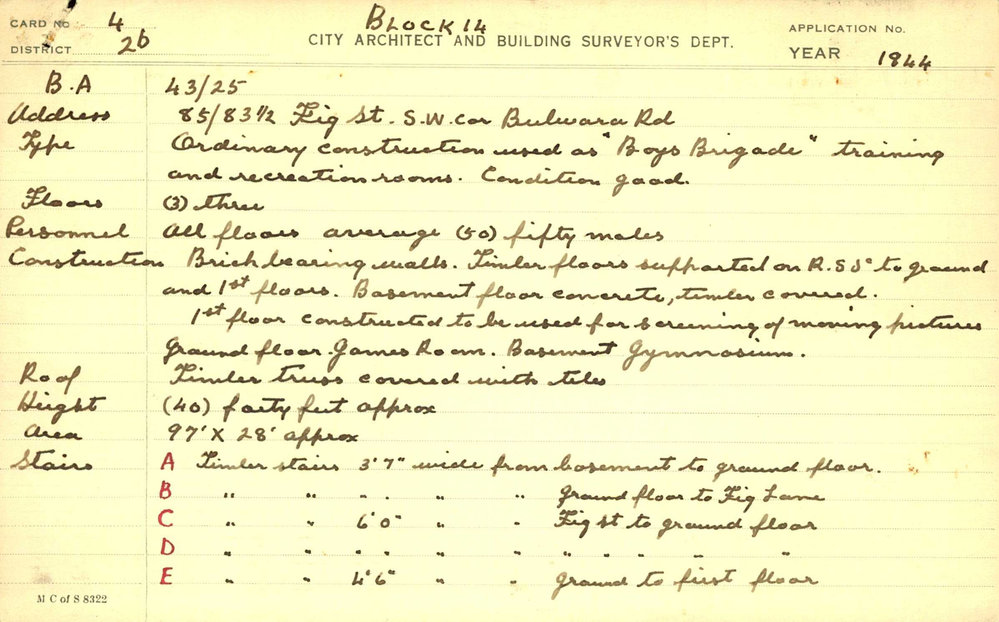 CARD No 4 BLOCK 14 APPLICATION No.
DISTRICT 26 CITY ARCHITECT AND BUILDING SURVEYOR'S DEPT. YEAR 1944
B.A 43/25
Address 85/83 1/2 Fig St. S.W. cor Bulwara Rd
Type Ordinary construction used as "Boys Brigade" training
and recreation rooms. Condition good.
Floors (3) three
Personnel All floors average (50) fifty males
Construction Brick bearing walls. Timber floors supported on R.S.Js to ground
and 1st floors. Basement floor concrete, timber covered.
1st floor constructed to be used for screening of moving pictures
Ground floor. Games Room. Basement Gymnasium.
Roof Timber truss covered with tiles
Height (40) forty feet approx
Area 97' X 28' approx
Stairs A Timber stairs 3'7" wide from basement to ground floor.
B " " " " " Ground floor to Fig Lane
C " " 6'0" " " Fig St to ground floor
D " " " " " " " " " "
E " " 4'6" " " Ground to first floor
M C of S 8322